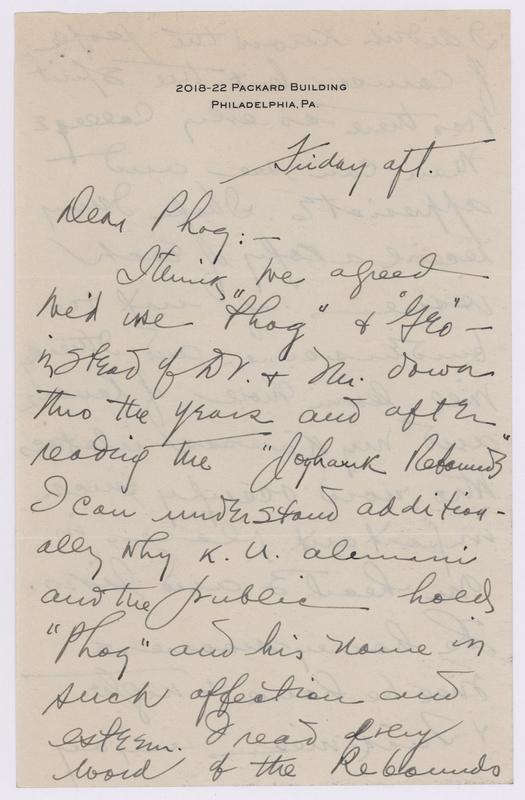 2018-22 PACKARD BUILDING
PHILADELPHIA, PA.
Friday aft.
Dear Phog:—
I think we agreed
we'd use "Phog" & "Geo"—
instead of Dr. & Mr. down
thro the years and after
reading the "Jayhawk Rebounds"
I can understand addition-
ally why K. U. alemni
and the public holds
"Phog" and his name in
such affection and
esteem. I read every
word of the Rebounds